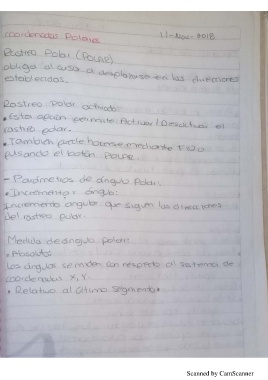 Coordenadas Polares 11-Nov-2018
Rastreo Polar (POLAR)
obliga al cursor a desplazarse en las direcciones
establecidas.
Rastreo Polar activado:
• Esta opción permite: Activar/Desactivar el
rastreo polar.
• También puede hacerse mediante F10 o
pulsando el botón POLAR.
- Parámetros de ángulo Polar:
• Incremento: ángulo:
Incremento angular que siguen las direcciones
del rastreo polar.
Medida de ángulo polar:
• Absoluto
Los ángulos se miden con respecto al sistema de
coordenadas X, Y.
• Relativo al último segmento.
Scanned by CamScanner